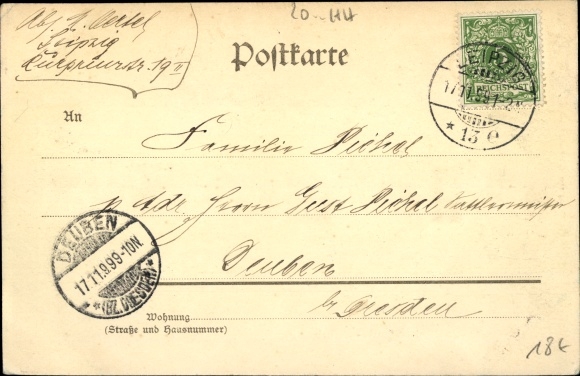 Abs. H. Oertel
Leipzig
Kurprinzstr. 19 II
20-HH
Postkarte
REICHSPOST
LEIPZIG
17.11.99.1-2N
* 13 a
An
Familie Pichel
p. Adr. Herrn Gust Pichel Sattlermeister
Deuben
b/Dresden
DEUBEN
17.11.9.99-10N
* (BZ. DRESDEN) *
Wohnung
(Straße und Hausnummer)
18t